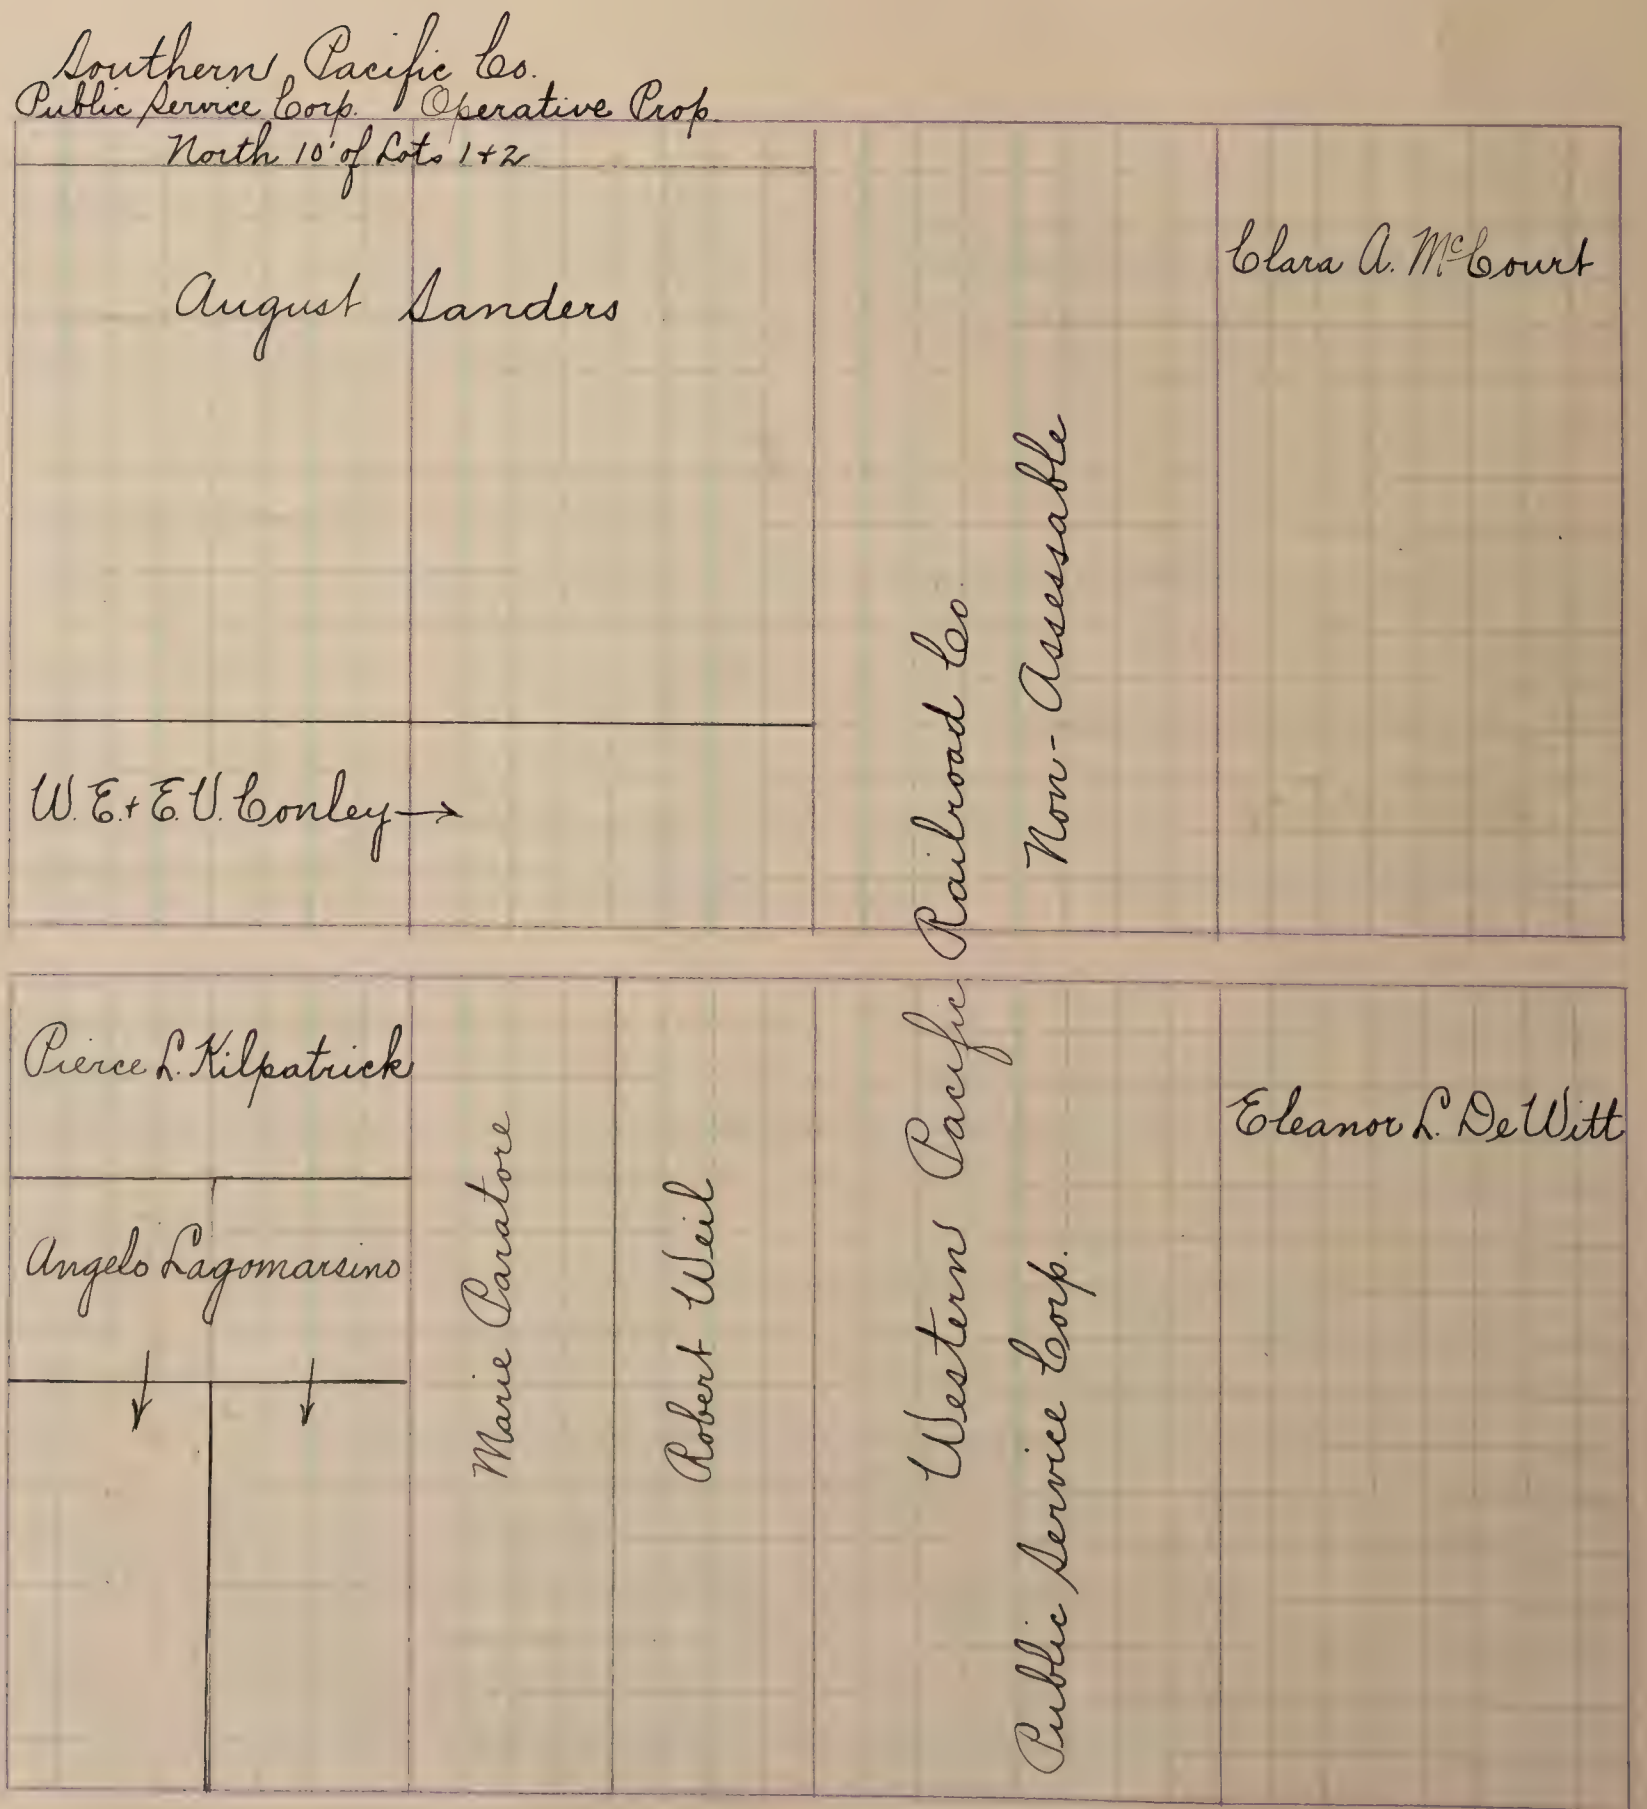 Southern Pacific Co.
Public Service Corp. Operative Prop.
North 10' of Lots 1+2
August Sanders
Clara A. McCourt
W.E.+E.V. Conley→
Western Pacific Railroad Co.
Public Service Corp. Non-Assessable
Pierce L. Kilpatrick
Angelo Lagomarsino
Marie Paratore
Robert Weil
Eleanor L. De Witt